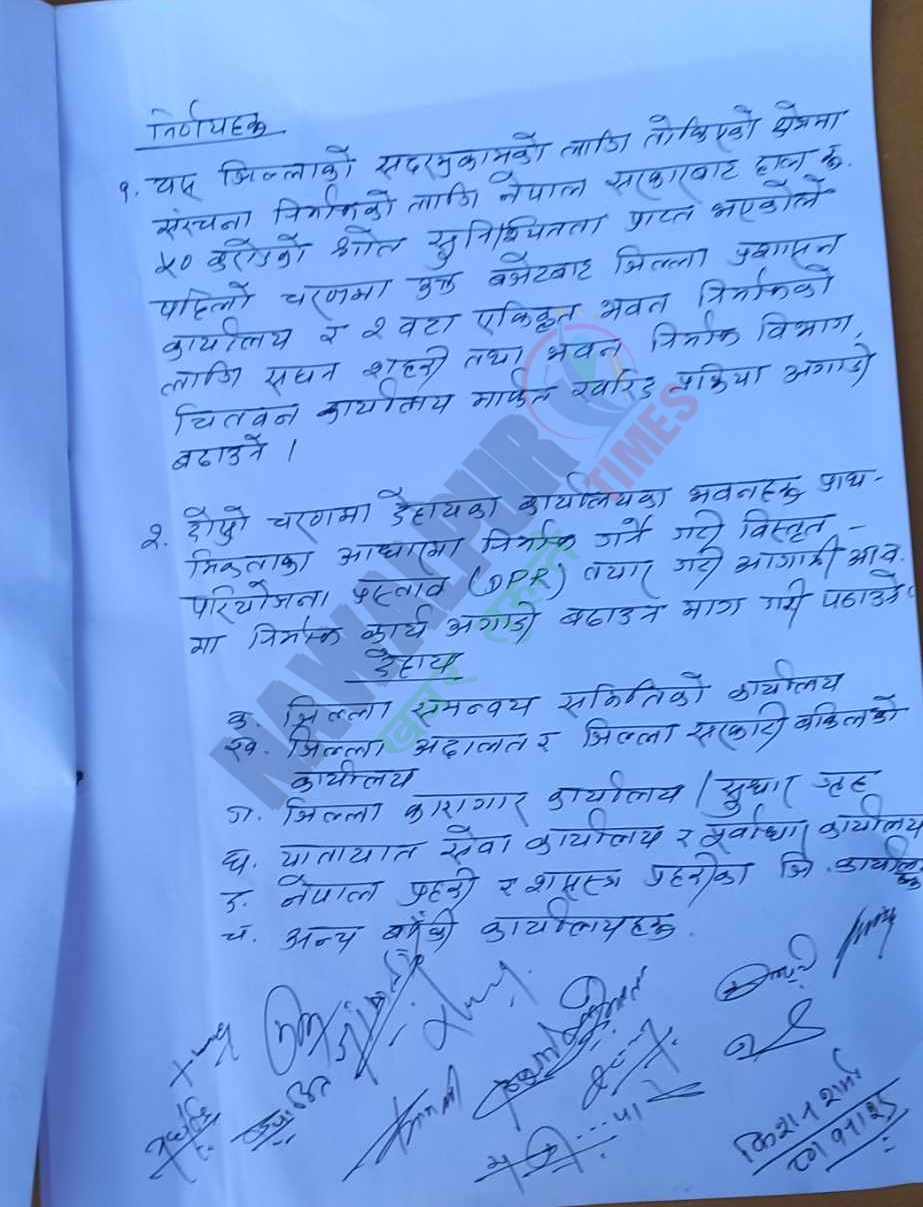 निर्णयहरू
१. यस जिल्लाको सदरमुकामको लागि तोकिएको क्षेत्रमा
संरचना निर्माणको लागि नेपाल सरकारबाट हाल रू.
५० करोडको श्रोत सुनिश्चितता प्राप्त भएकोले
पहिलो चरणमा उक्त बजेटबाट जिल्ला प्रशासन
कार्यालय र २ वटा एकिकृत भवन निर्माणको
लागि सघन शहरी तथा भवन निर्माण विभाग,
चितवन कार्यालय मार्फत खरिद प्रक्रिया अगाडी
बढाउने ।
२. दोस्रो चरणमा देहायका कार्यालयका भवनहरू प्राथ-
मिकताका आधारमा निर्माण गर्ने गरी विस्तृत -
परियोजना प्रस्ताव (DPR) तयार गरी आगामी आ.व.
मा निर्माण कार्य अगाडी बढाउन माग गरी पठाउने ।
देहाय
क. जिल्ला समन्वय समितिको कार्यालय
ख. जिल्ला अदालत र जिल्ला सरकारी वकिलको
कार्यालय
ग. जिल्ला कारागार कार्यालय / सुधार गृह
घ. यातायात सेवा कार्यालय र पूर्वाधार कार्यालय
ङ. नेपाल प्रहरी र शसस्त्र प्रहरीका जि. कार्यालयहरू
च. अन्य बाँकी कार्यालयहरू.
किशन शर्मा
NAWALPUR TIMES